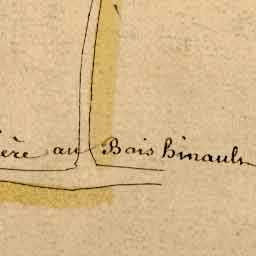 ère au Bois hinault